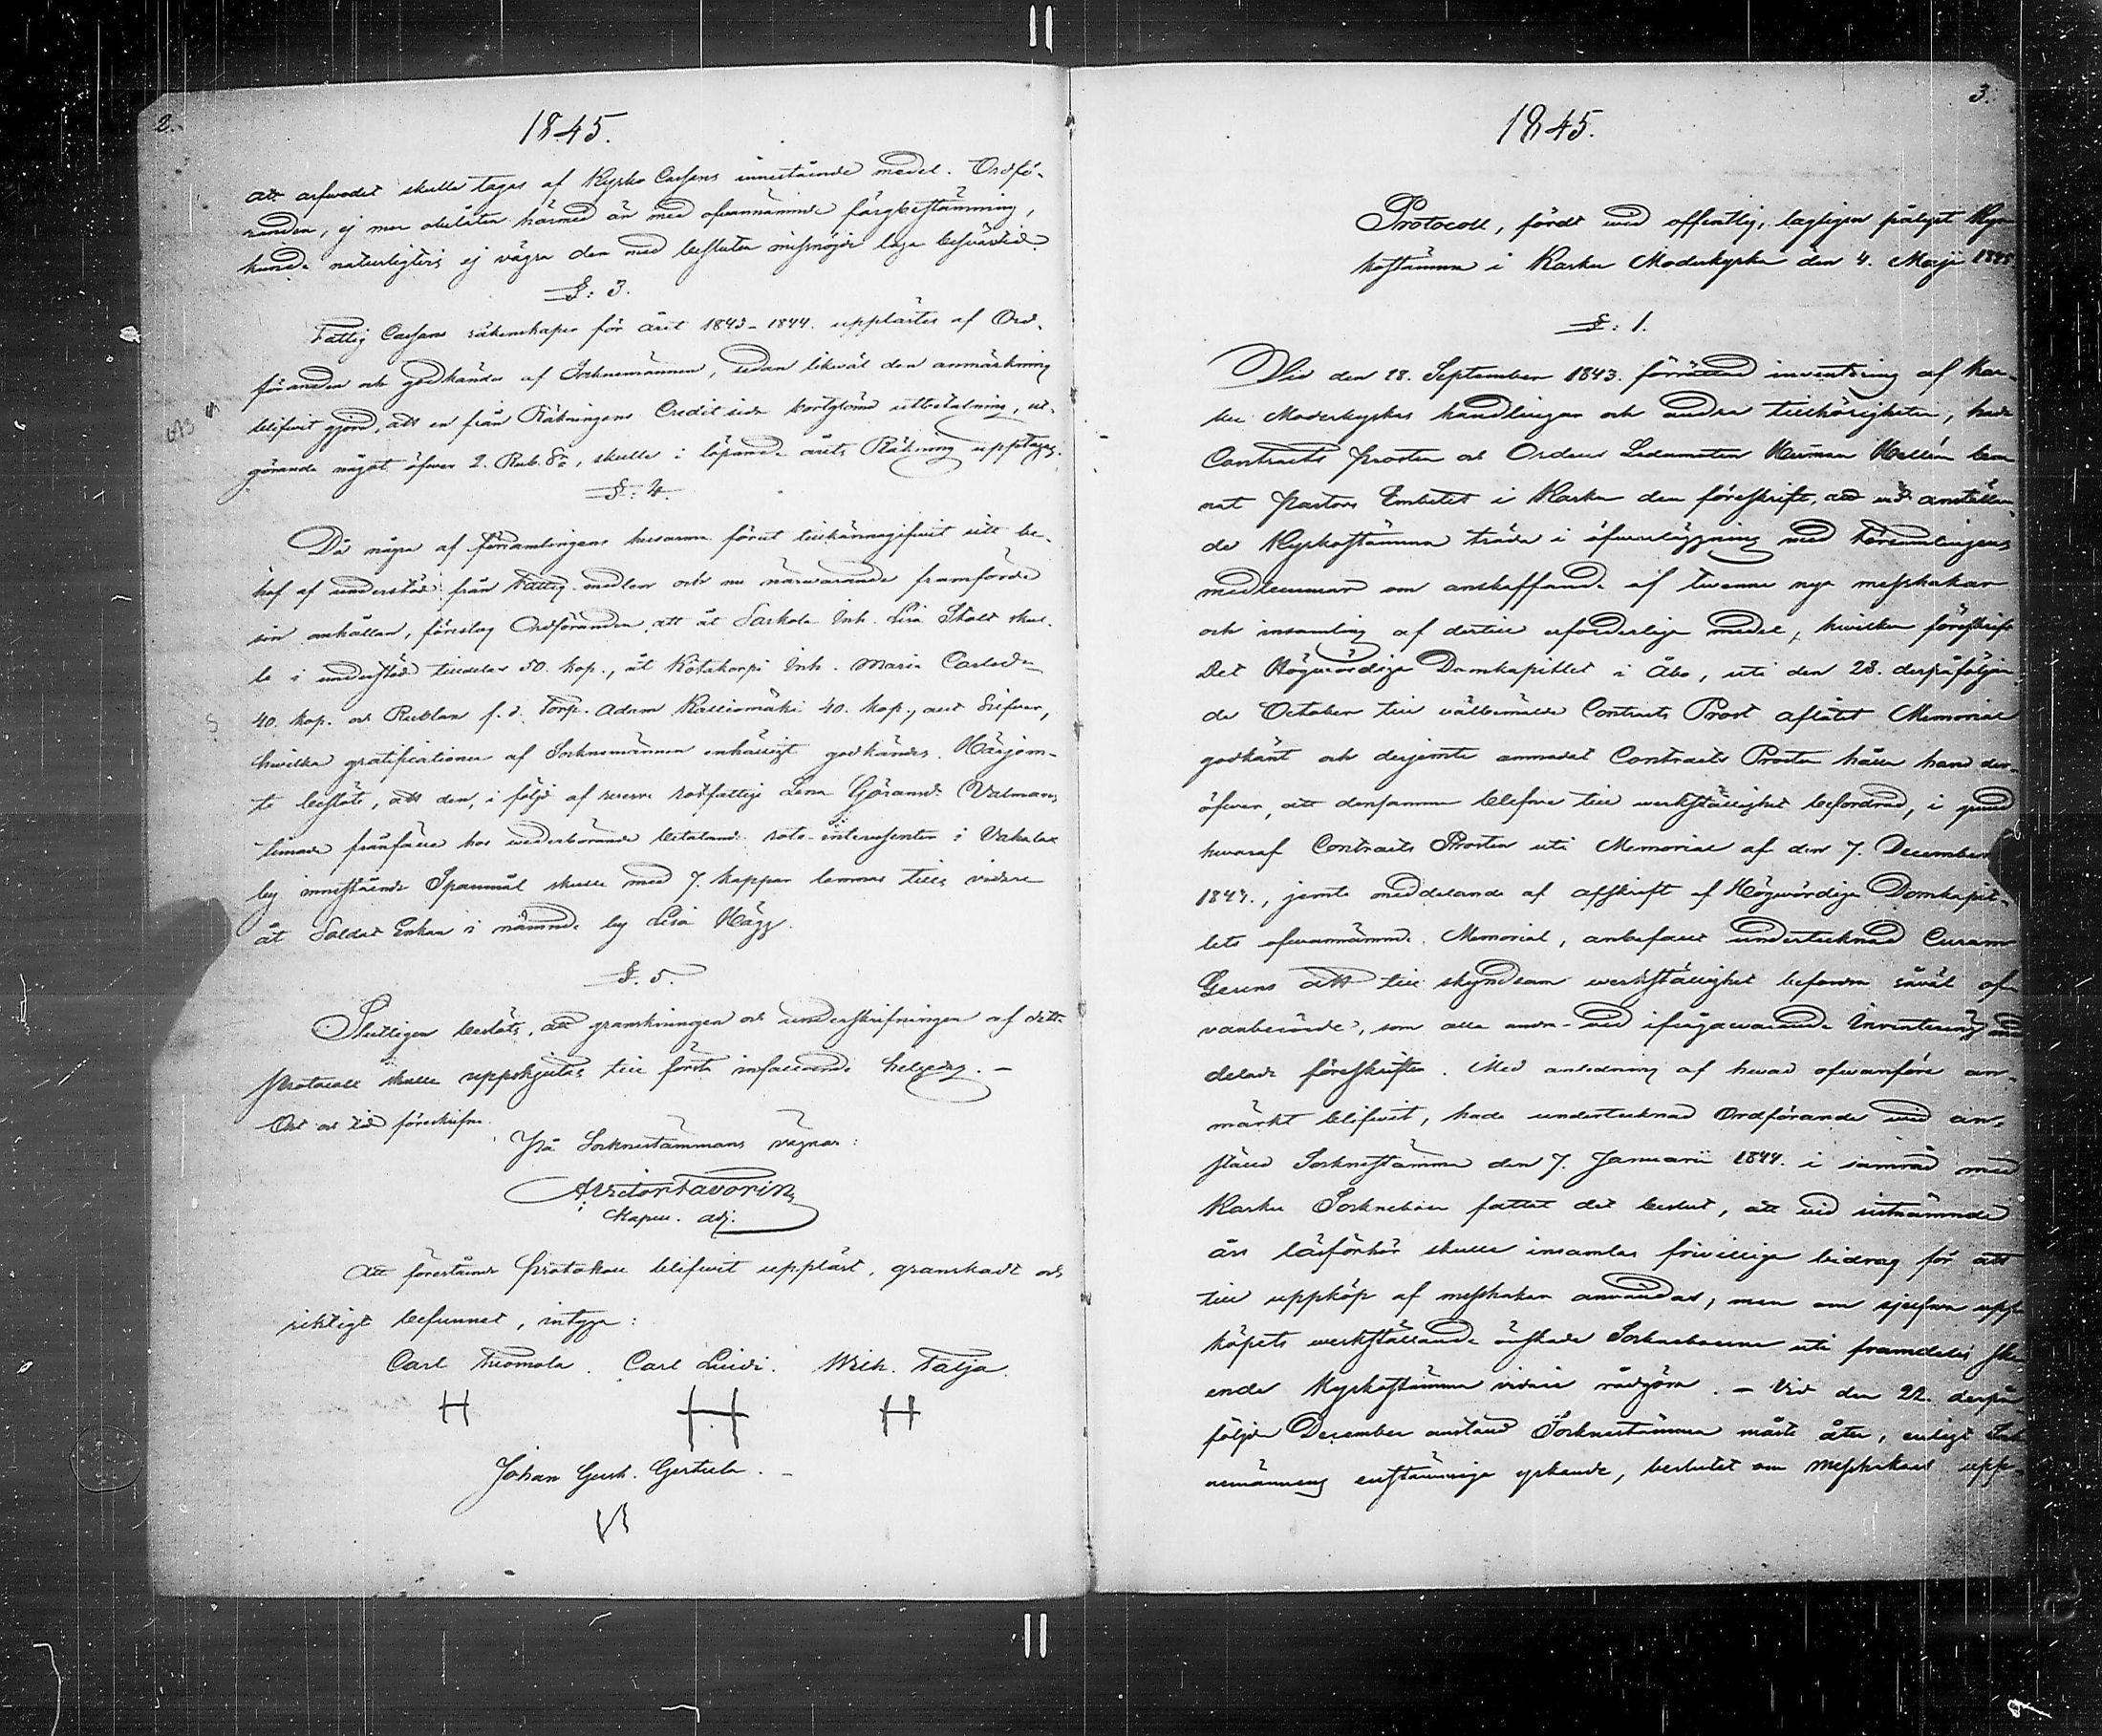 2.
1845.
att arfwodet skulle tagas af Kyrko Cassans innestående medel. Ordfö-
randen, ej mer åtlåten härmed än med ofvannämnde färgbestämning,
kunde naturligtvis ej vägra den med besluten missnöjde laga besvärstid.
§: 3.
Fattig Cassans räkenskaper för året 1843-1844. upplästes af Ord-
föranden och godkändes af Socknemännen, sedan likväl den anmärkning
blifvit gjord, att en från Räkningens Credit sida bortglömd utbetalning, ut-
görande något öfver 2. Rub. S:r, skulle i löpande årets Räkning upptagas.
§: 4.
Då några af församlingens husarma förut tillkännagifvit sitt be-
hof af understöd från Fattig-medlen och nu närvarande framförde
sin anhållan, föreslog Ordföranden, att åt Sarkola Inh. Lisa Stolt skul-
le i understöd tilldelas 50. kop., åt Kötskorpi Inh. Maria Carlsd:r
40. kop. och Rublan f. d. Torp. Adam Kalliomäki 40. kop., allt Silfver,
hvilka gratificationer af Socknemännen enhälligt godkändes. Härjem-
te beslöts, att den, i följd af rotfattige Lena Göransd:r Valmans
timade frånfälle hos wederbörande betalande rote-intressenter i Vakalax
by innestående Spannmål skulle med 7. kappar lemnas tills vidare
åt Soldat Enkan i nämnde by Lisa Hägg.
§. 5.
Slutligen beslöts, att granskningen och underskrifningen af detta
Protocoll skulle uppskjutas till första infallande helgedag. -
Ort och tid föreskrifne.
På Socknestämmans vägnar:
A. Victor Favorin
Kapell. adj.
Att förestående Protokoll blifvit uppläst, granskadt och
riktigt befunnet, intyga:
Carl Tuomola. Carl Luidi. Wilh. Talja.
H H H
Johan Gust. Gertula. -
3.
1845.
Protocoll, fördt vid offentlig, lagligen pålyst Kyr-
kostämma i Karku Moderkyrka den 4. Maji 1845
§: 1.
Vid den 28. September 1843. förrättad inventering af Kar-
ku Moderkyrkas handlingar och andra tillhörigheter, hade
Contracts Prosten och Ordens Ledamoten Herman Hellén lem-
nat Pastors Embetet i Karku den föreskrift, att vid anställan-
de Kyrkostämma träda i öfverläggning med Församlingens
medlemmar om anskaffande af tvenne nya messhakar
och insamling af dertill erforderlige medel, hvilken föreskrift
Det Högvördiga Domkapitlet i Åbo, uti den 28. derpåföljan-
de October till välbemälde Contracts Prost aflåtet Memorial
godkänt och derjemte anmodat Contracts Prosten hålla hand der-
öfver, att densamma blefve till werkställighet befordrad, i grund
hvaraf Contracts Prosten uti Memorial af den 7. December
1843., jemte meddelande af afskrift af Högvördiga Domkapit-
lets ofvannämnde Memorial, anbefallt undertecknad Curam
Gerens att till skyndsam werkställighet befordra såväl of-
vanberörde, som alla andra vid ifrågavarande Inventering med
delade föreskrifter. Med anledning af hvad ofvanföre an-
märkt blifvit, hade undertecknad Ordförande vid an-
ställd Socknestämma den 7. Januarii 1844. i samråd med
Karku Sockneboer fattat det beslut, att vid sistnämnde
års läsförhör skulle insamlas frivillige bidrag för att
till uppköp af messhakar användas; men om sjelfva upp-
köpets werkställande önskade Socknboerne uti framdeles ske
ende Kyrkostämma vidare rådgöra. - Vid den 22. derpå
följde December anställd Socknestämma måste åter, enligt Sock
nemännens enstämmige yrkande, beslutet om Messhakars upp-